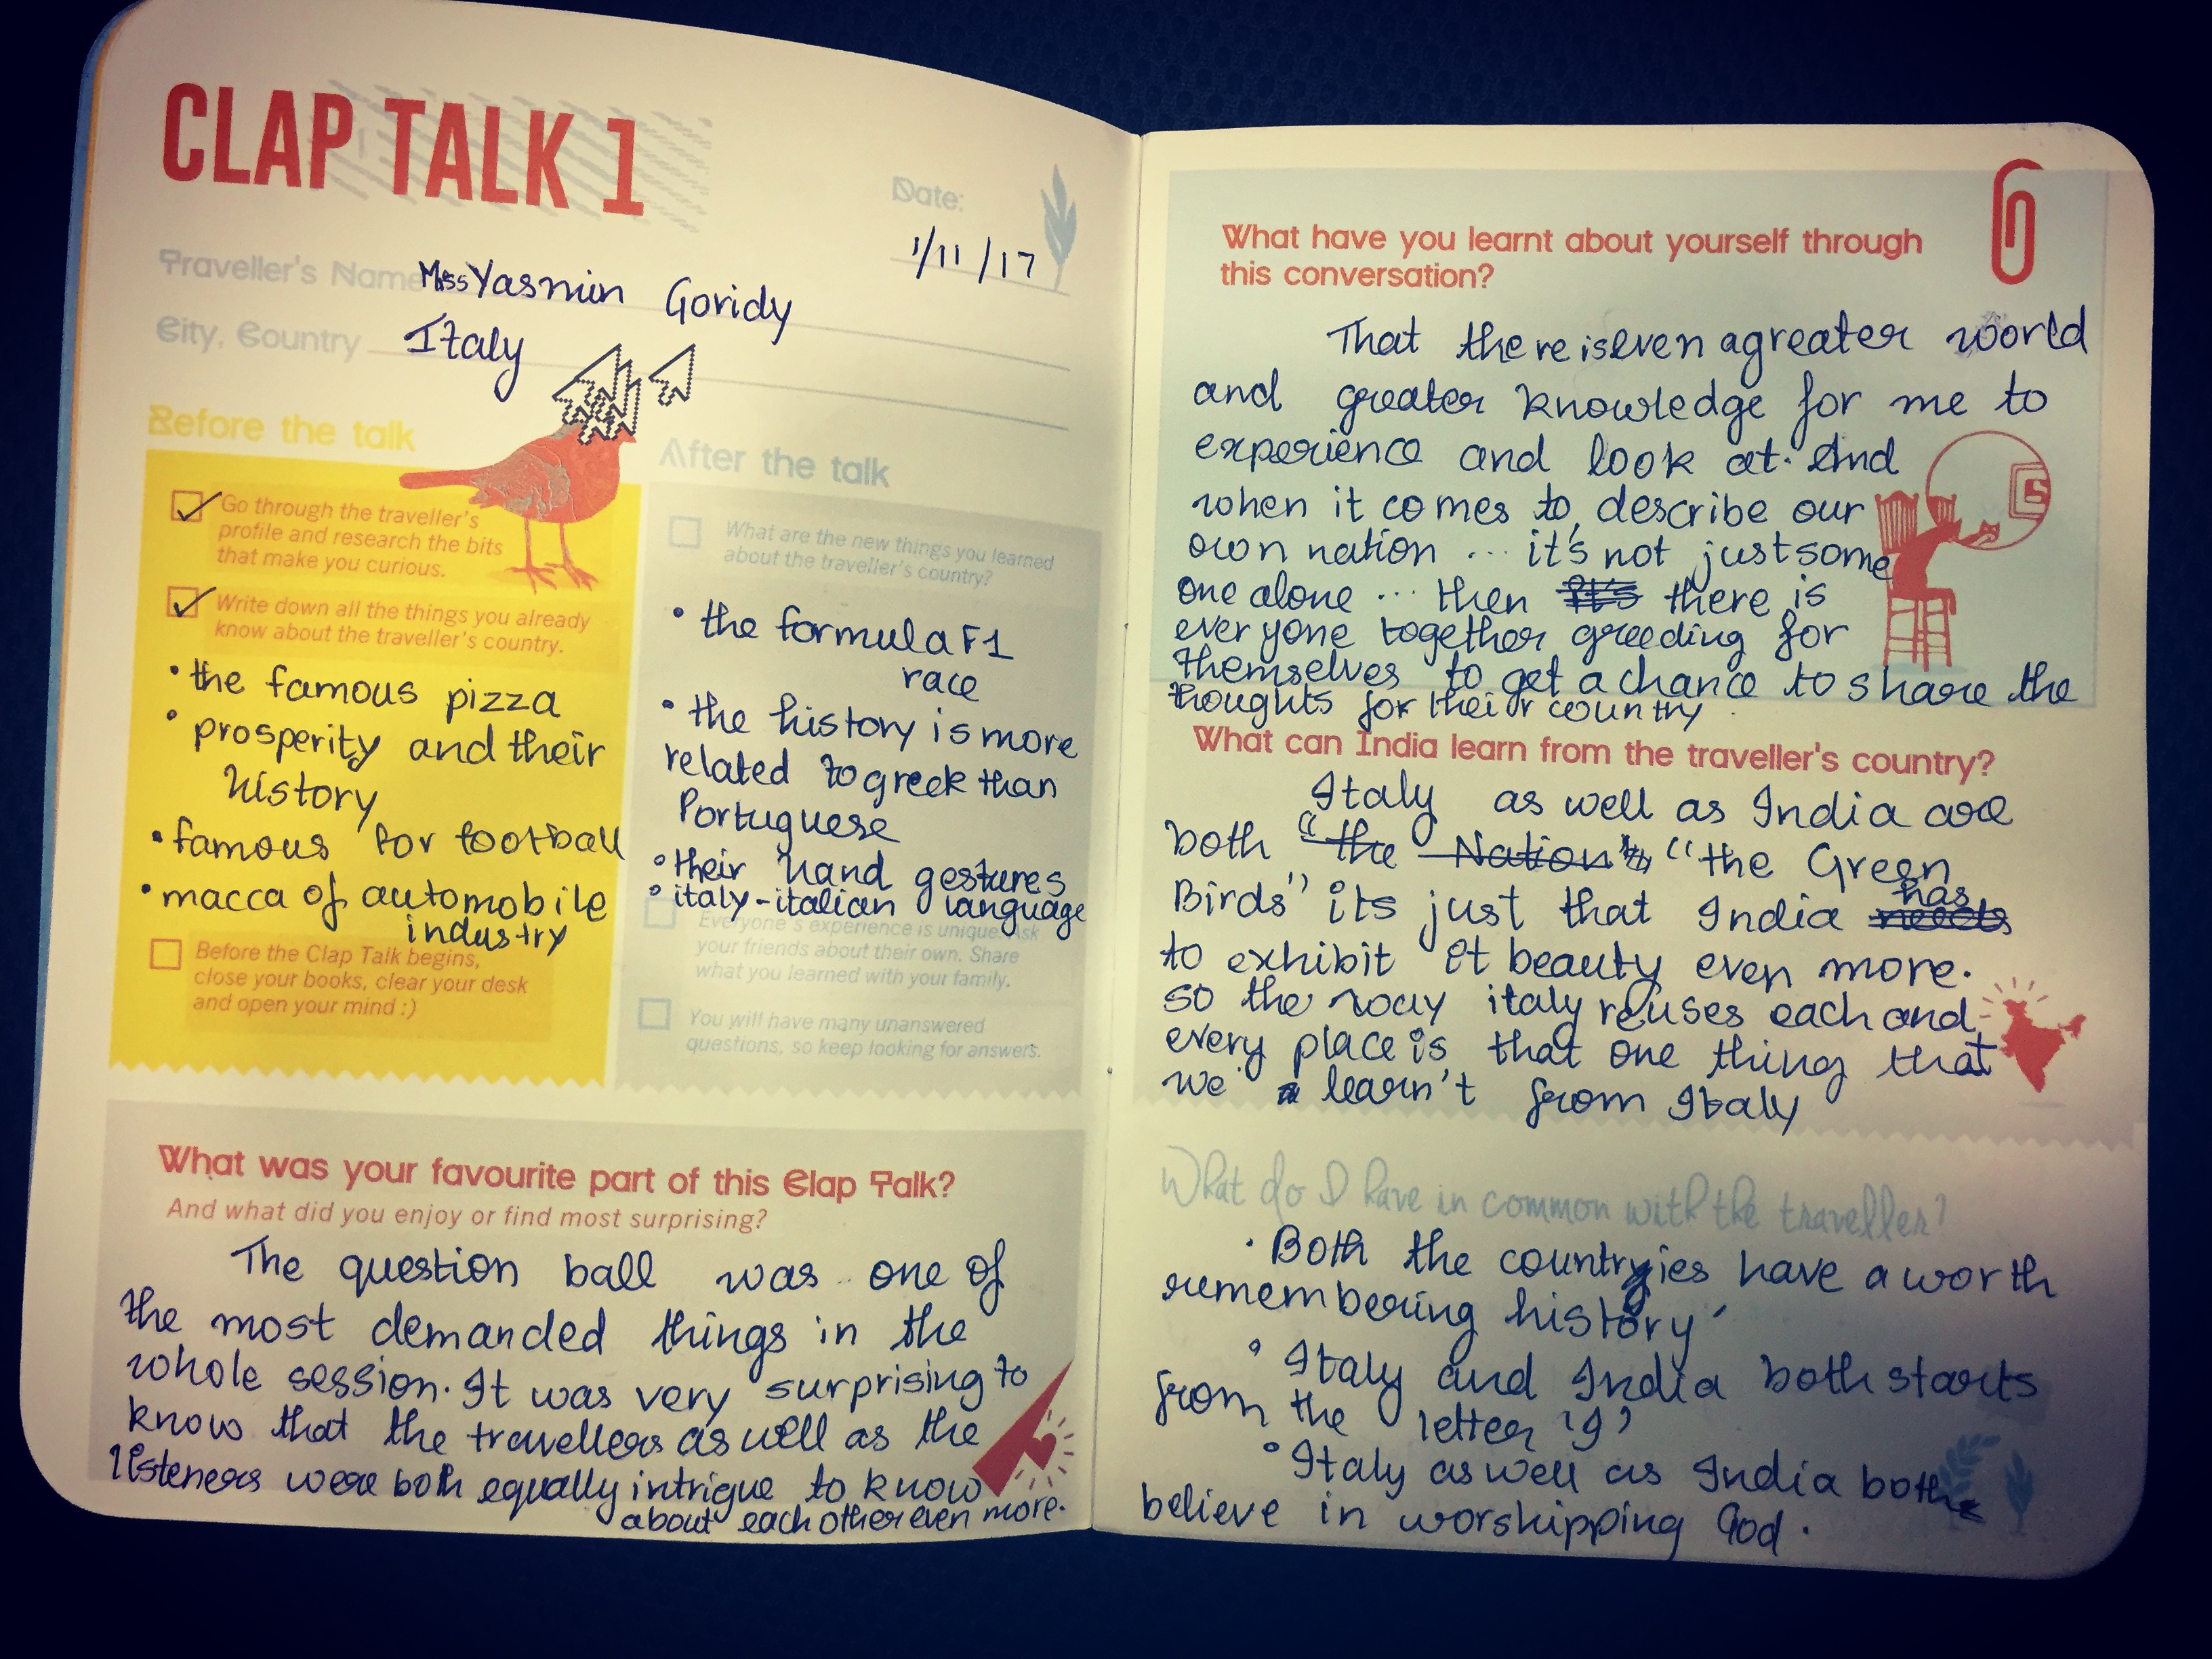 CLAP TALK 1
Date:
1/11/17
Traveller's Name Miss Yasmin Goridy
City, Country Italy
Before the talk
Go through the traveller's
profile and research the bits
that make you curious.
Write down all the things you already
know about the traveller's country.
• the famous pizza
• prosperity and their
history
• famous for football
• macca of automobile
industry
Before the Clap Talk begins,
close your books, clear your desk
and open your mind :)
After the talk
What are the new things you learned
about the traveller's country?
• the formula F1
race
• the history is more
related to greek than
Portuguese
• their hand gestures
• italy-italian language
Everyone's experience is unique. Ask
your friends about their own. Share
what you learned with your family.
You will have many unanswered
questions, so keep looking for answers.
What was your favourite part of this Clap Talk?
And what did you enjoy or find most surprising?
The question ball was one of
the most demanded things in the
whole session. It was very surprising to
know that the travellers as well as the
listeners were both equally intrigue to know
about each other even more.
What have you learnt about yourself through
this conversation?
That there is even a greater world
and greater knowledge for me to
experience and look at. And
when it comes to, describe our
own nation ... it's not just some
one alone ... then it's there is
everyone together greeding for
themselves to get a chance to share the
thoughts for their country.
What can India learn from the traveller's country?
Italy as well as India are
both "the Nation "the Green
Birds" its just that India needs has
to exhibit it beauty even more.
so the way italy reuses each and
every place is that one thing that
we learn't from Italy
What do I have in common with the traveller?
• Both the countryies have a worth
remembering history
• Italy and India both starts
from the letter 'I'
• Italy as well as India both
believe in worshipping God.